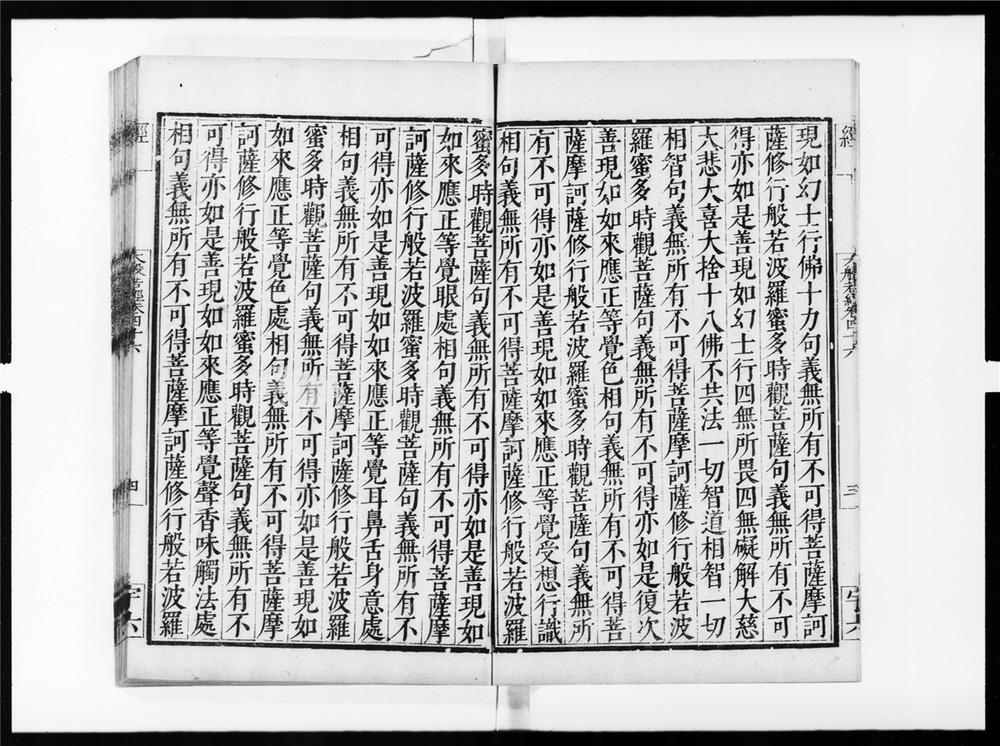 現如幻士行佛十力句義無所有不可得菩薩摩訶
薩修行般若波羅蜜多時觀菩薩句義無所有不可
得亦如是善現如幻士行四無所畏四無礙解大慈
大悲大喜大捨十八佛不共法一切智道相智一切
相智句義無所有不可得菩薩摩訶薩修行般若波
羅蜜多時觀菩薩句義無所有不可得亦如是復次
善現如如來應正等覺色相句義無所有不可得菩
薩摩訶薩修行般若波羅蜜多時觀菩薩句義無所
有不可得亦如是善現如如來應正等覺受想行識
相句義無所有不可得菩薩摩訶薩修行般若波羅
蜜多時觀菩薩句義無所有不可得亦如是善現如
如來應正等覺眼處相句義無所有不可得菩薩摩
訶薩修行般若波羅蜜多時觀菩薩句義無所有不
可得亦如是善現如如來應正等覺耳鼻舌身意處
相句義無所有不可得菩薩摩訶薩修行般若波羅
蜜多時觀菩薩句義無所有不可得亦如是善現如
如來應正等覺色處相句義無所有不可得菩薩摩
訶薩修行般若波羅蜜多時觀菩薩句義無所有不
可得亦如是善現如如來應正等覺聲香味觸法處
相句義無所有不可得菩薩摩訶薩修行般若波羅
經
大般若經卷四十六
四
字六